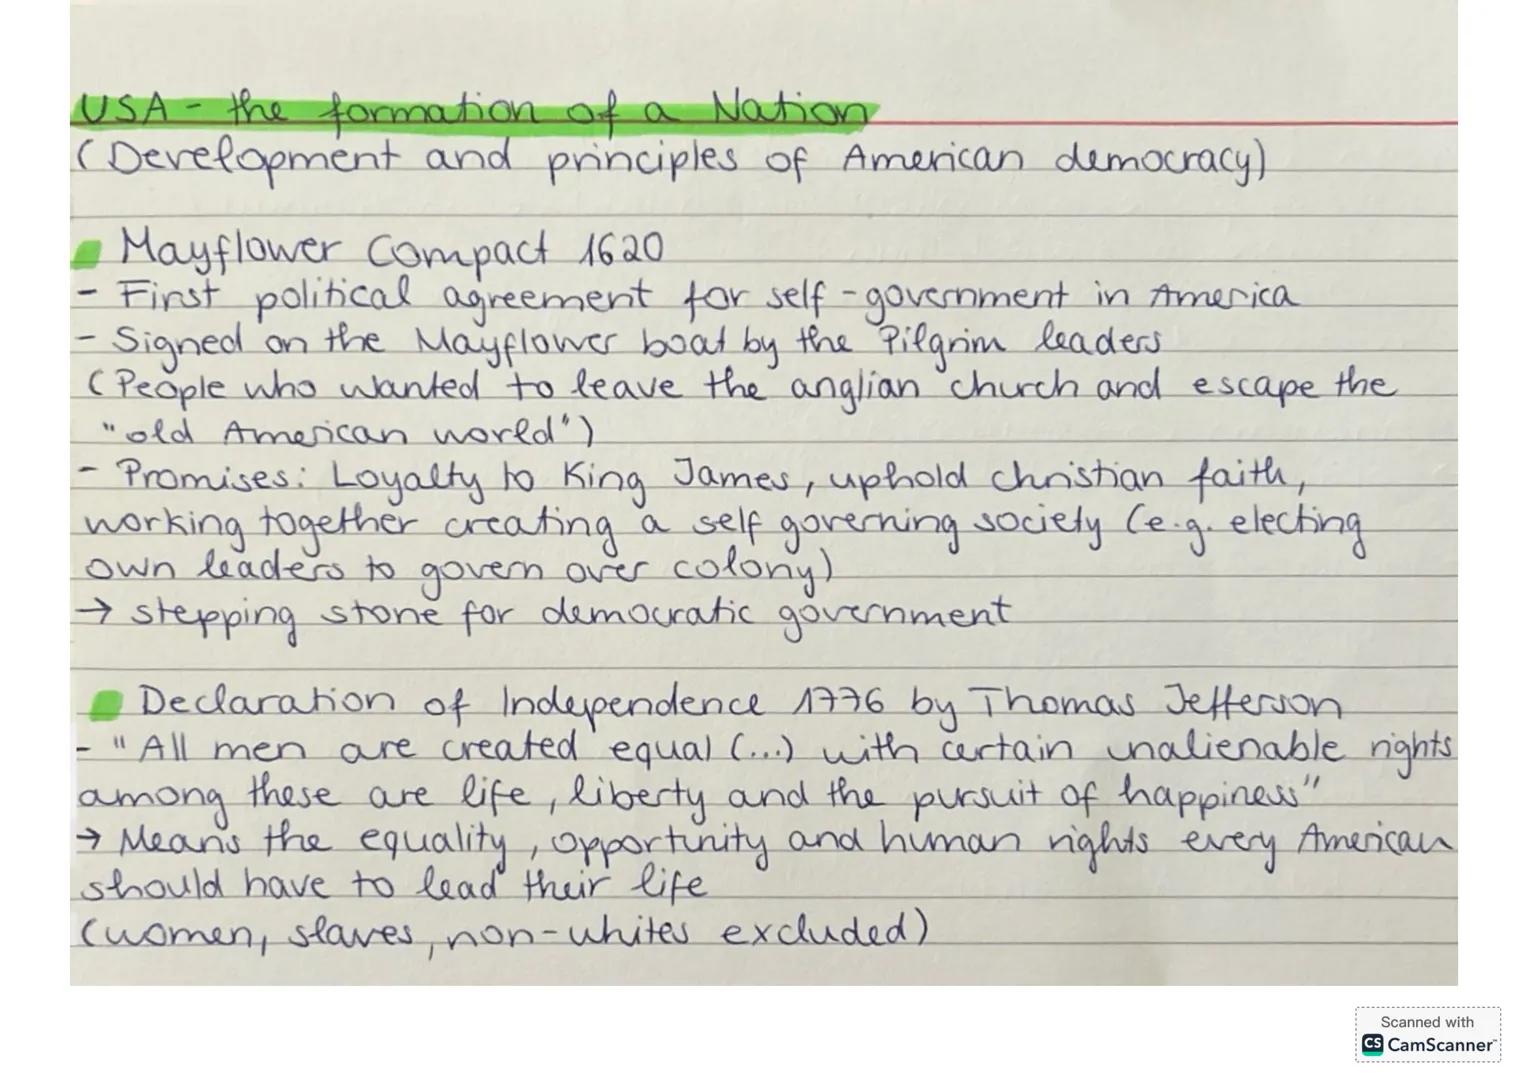 USA - the formation of a Nation
(Development and principles of American democracy)
Mayflower Compact 1620
- First political agreement for self-government in America
- Signed on the Mayflower boat by the Pilgrim leaders
(People who wanted to leave the anglian church and escape the
"old American world")
- Promises: Loyalty to King James, uphold christian faith,
working together creating a self governing society (e.g. electing
own leaders to govern over colony)
→ stepping stone for democratic government
Declaration of Independence 1776 by Thomas Jefferson
- "All men are created equal (...) with certain unalienable rights
among these are life, liberty and the pursuit of happiness"
→ Means the equality, opportunity and human rights every American
should have to lead their life
(women, slaves, non-whites excluded)
Scanned with
CS CamScanner